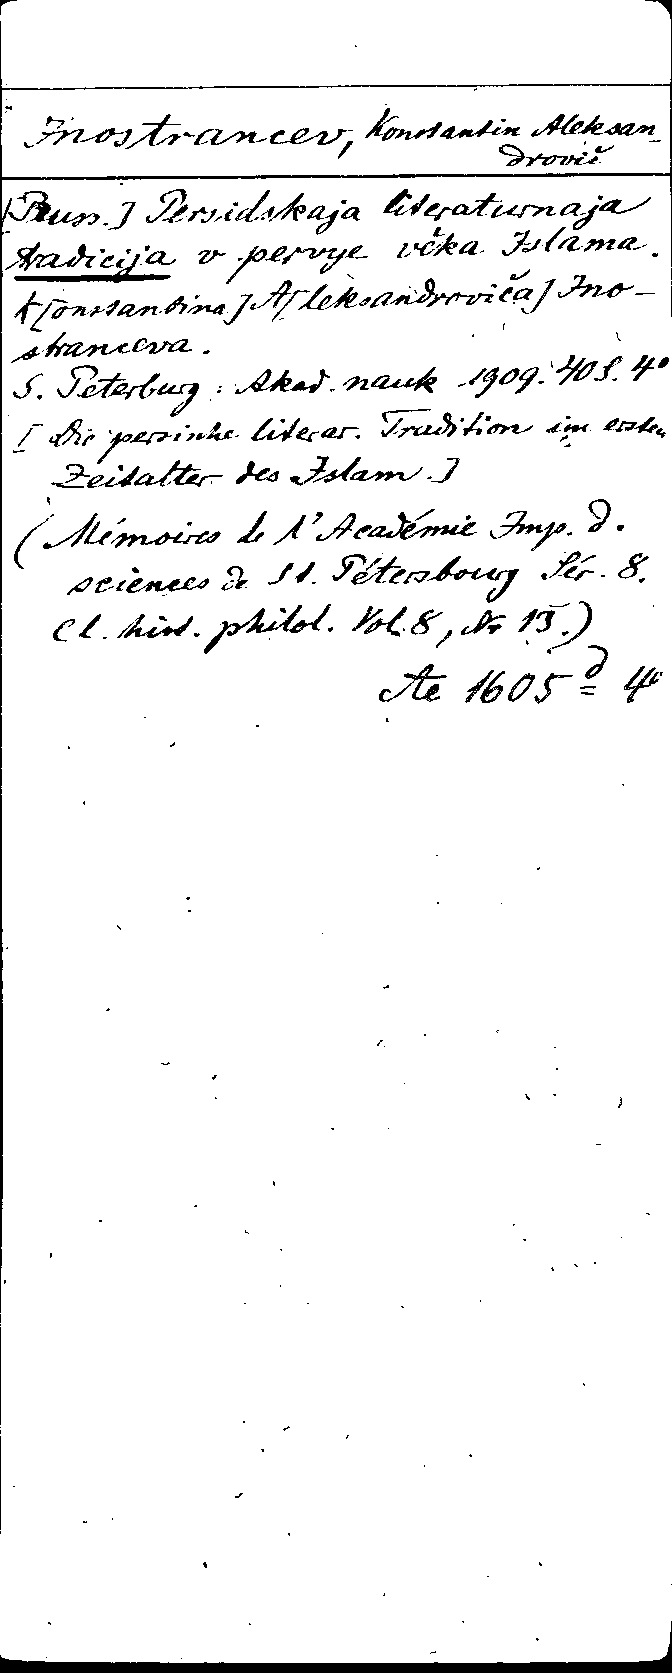 Inostrancev, Konstantin Aleksan-
drovič
[Russ.] Persidskaja literaturnaja
tradicija v pervye věka Islama.
K[onstantina] A[leksandroviča] Ino-
stranceva.
S. Peterburg: Akad. nauk 1909. 40 S. 4°
[Die persische literar. Tradition im ersten
Zeitalter des Islam.]
(Mémoires de l'Académie Imp. d.
sciences de St. Pétersbourg Sér. 8.
Cl. hist. philol. Vol. 8, Nr 13.)
Ae 1605 d 4°